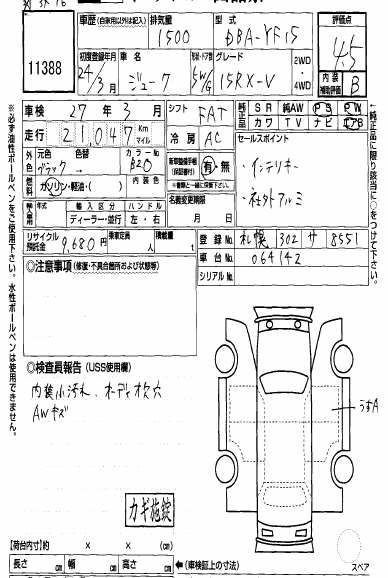 11388
車歴(自家用以外は記入)
排気量
1500
型式
DBA-YF15
評価点
4.5
内装補助評価
B
初度登録年月
24/3月
車名
ジューク
型・ドア数
5W/G
グレード
15RX-V
2WD・4WD
車検
27年3月
シフト
FAT
純正品
SR 純AW PS PW
カワ TV ナビ
走行
21047
Km
マイル
冷房
AC
セールスポイント
・インテリキー
・社外アルミ
外色
元色
ブラック→
色替
カラーNo
内装色
新車整備手帳(保証書付)
有・無
※書類と一緒に保管して下さい。
燃料
ガソリン・軽油・( )
名義変更期限
月 日
輸入車
年式
輸入区分
ディーラー・並行
ハンドル
左・右
リサイクル預託金
9,680円
乗車定員
人
積載量
t
登録No.
札幌 302 サ 8551
車台No.
064142
シリアルNo.
◎注意事項(修復・不具合箇所および状態等)
◎検査員報告(USS使用欄)
内装小汚れ、オーディオ欠穴
AWキズ
うすA
カギ施錠
【荷台内寸】約 × × (cm)
長さ cm 幅 cm 高さ cm
←(車検証上の寸法)
スペア
※必ず油性ボールペンをご使用下さい。水性ボールペンは使用できません。
←純正品に限り該当に○をつけて下さい。